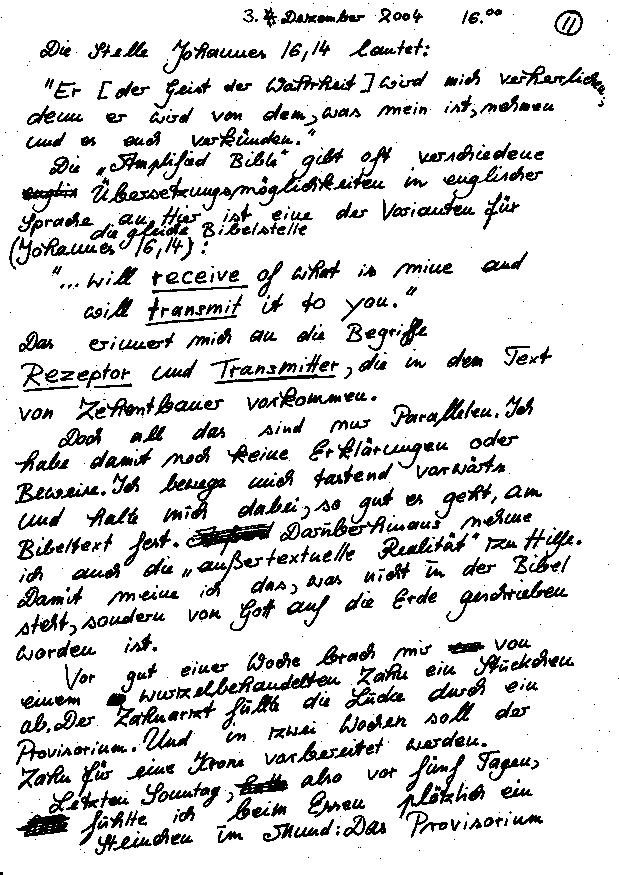 3. Dezember 2004 16.⁰⁰ 11
Die Stelle Johannes 16,14 lautet:
"Er [der Geist der Wahrheit] wird mich verherrlichen;
denn er wird von dem, was mein ist, nehmen
und es euch verkünden."
Die „Amplified Bible" gibt oft verschiedene
Übersetzungsmöglichkeiten in englischer
Sprache an. Hier ist eine der Varianten für
die gleiche Bibelstelle
(Johannes 16,14):
"... will receive of what is mine and
will transmit it to you."
Das erinnert mich an die Begriffe
Rezeptor und Transmitter, die in dem Text
von Zehentbauer vorkommen.
Doch all das sind nur Parallelen. Ich
habe damit noch keine Erklärungen oder
Beweise. Ich bewege mich tastend vorwärts
und halte mich dabei, so gut es geht, am
Bibeltext fest. Darüberhinaus nehme
ich auch die „außertextuelle Realität" zu Hilfe.
Damit meine ich das, was nicht in der Bibel
steht, sondern von Gott auf die Erde geschrieben
worden ist.
Vor gut einer Woche brach mir von
einem wurzelbehandelten Zahn ein Stückchen
ab. Der Zahnarzt füllte die Lücke durch ein
Provisorium. Und in zwei Wochen soll der
Zahn für eine Krone vorbereitet werden.
Letzten Sonntag, also vor fünf Tagen,
fühlte ich beim Essen plötzlich ein
Steinchen im Mund: Das Provisorium